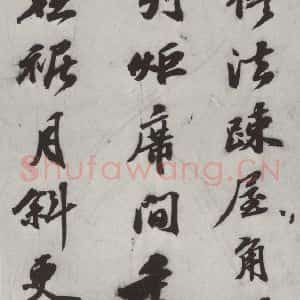 法疎屋角
列炬席間
裾月斜更
Shufawang.CN